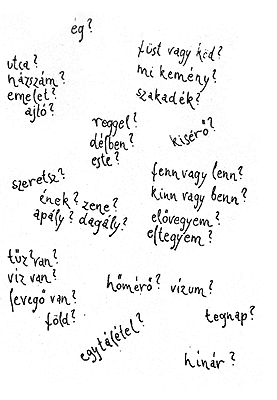 ég?
füst vagy köd?
mi kemény?
szakadék?
utca?
házszám?
emelet?
ajtó?
reggel?
délben?
este?
kísérő?
szeretsz?
ének? zene?
apály? dagály?
fenn vagy lenn?
kinn vagy benn?
elővegyem?
eltegyem?
tűz van?
víz van?
levegő van?
föld?
hőmérő? vízum?
tegnap?
egytálétel?
hínár?